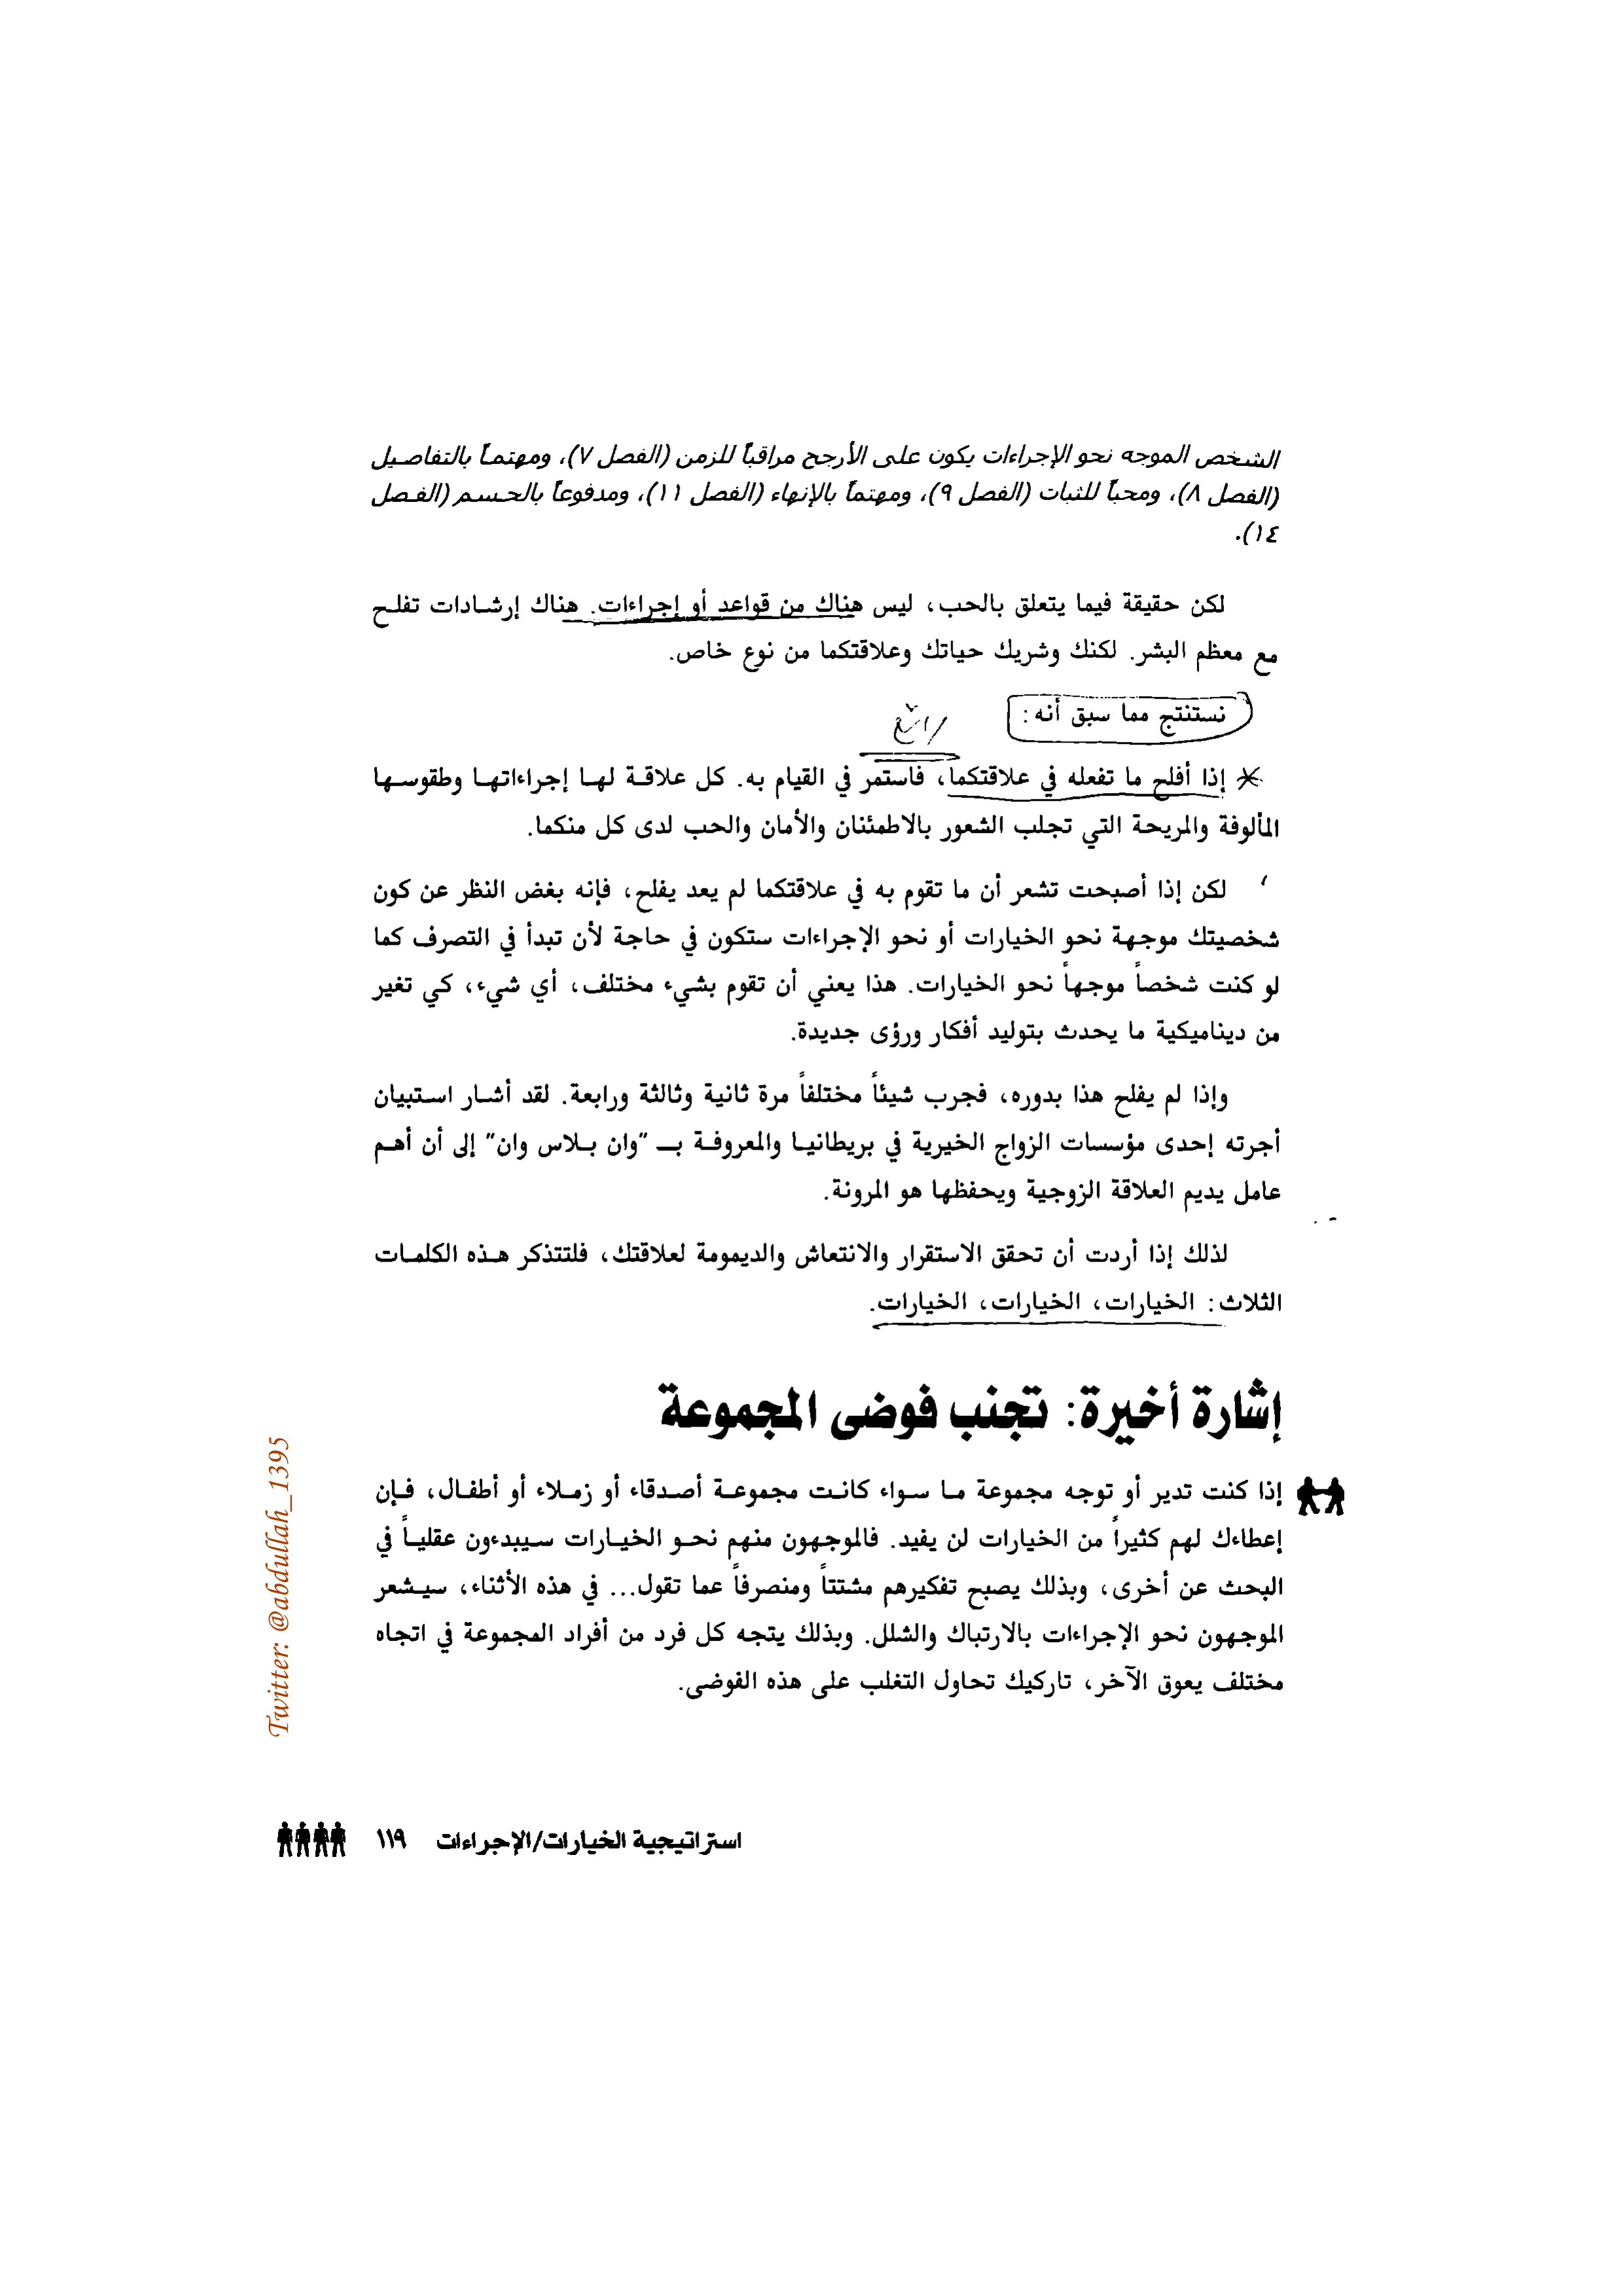 الشخص الموجه نحو الإجراءات يكون على الأرجح مراقباً للزمن (الفصل ٧)، ومهتماً بالتفاصيل
(الفصل ٨)، ومحباً للثبات (الفصل ٩)، ومهتماً بالإنهاء (الفصل ١١)، ومدفوعاً بالحسم (الفصل
١٤).
لكن حقيقة فيما يتعلق بالحب، ليس هناك من قواعد أو إجراءات. هناك إرشادات تفلح
مع معظم البشر. لكنك وشريك حياتك وعلاقتكما من نوع خاص.
نستنتج مما سبق أنه:
رائع
إذا أفلح ما تفعله في علاقتكما، فاستمر في القيام به. كل علاقة لها إجراءاتها وطقوسها
المألوفة والمريحة التي تجلب الشعور بالاطمئنان والأمان والحب لدى كل منكما.
لكن إذا أصبحت تشعر أن ما تقوم به في علاقتكما لم يعد يفلح، فإنه بغض النظر عن كون
شخصيتك موجهة نحو الخيارات أو نحو الإجراءات ستكون في حاجة لأن تبدأ في التصرف كما
لو كنت شخصاً موجهاً نحو الخيارات. هذا يعني أن تقوم بشيء مختلف، أي شيء، كي تغير
من ديناميكية ما يحدث بتوليد أفكار ورؤى جديدة.
وإذا لم يفلح هذا بدوره، فجرب شيئاً مختلفاً مرة ثانية وثالثة ورابعة. لقد أشار استبيان
أجرته إحدى مؤسسات الزواج الخيرية في بريطانيا والمعروفة بـ "وان بلاس وان" إلى أن أهم
عامل يديم العلاقة الزوجية ويحفظها هو المرونة.
لذلك إذا أردت أن تحقق الاستقرار والانتعاش والديمومة لعلاقتك، فلتتذكر هذه الكلمات
الثلاث: الخيارات، الخيارات، الخيارات.
إشارة أخيرة: تجنب فوضى المجموعة
إذا كنت تدير أو توجه مجموعة ما سواء كانت مجموعة أصدقاء أو زملاء أو أطفال، فإن
إعطاءك لهم كثيراً من الخيارات لن يفيد. فالموجهون منهم نحو الخيارات سيبدءون عقلياً في
البحث عن أخرى، وبذلك يصبح تفكيرهم مشتتاً ومنصرفاً عما تقول... في هذه الأثناء، سيشعر
الموجهون نحو الإجراءات بالارتباك والشلل. وبذلك يتجه كل فرد من أفراد المجموعة في اتجاه
مختلف يعوق الآخر، تاركيك تحاول التغلب على هذه الفوضى.
استراتيجية الخيارات/الإجراءات ١١٩
Twitter: @abdullah_1395